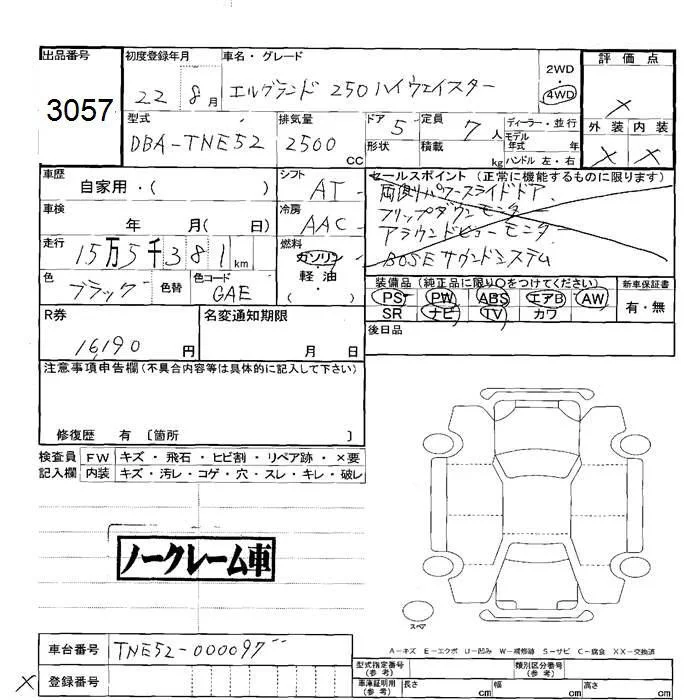 出品番号
3057
初度登録年月
22 8月
車名・グレード
エルグランド 250 ハイウェイスター
2WD
・
4WD
評価点
×
外装 内装
× ×
型式
DBA-TNE52
排気量
2500 CC
ドア 5
形状
定員 7 人
積載 kg
ディーラー・並行
モデル年式 年
ハンドル 左・右
車歴
自家用・( )
シフト
AT
車検
年 月( 日)
冷房
AAC
走行
15万5千381km
燃料
ガソリン
軽油
( )
色
ブラック
色替
色コード
GAE
セールスポイント (正常に機能するものに限ります)
両側パワースライドドア
フリップダウンモニター
アラウンドビューモニター
BOSEサウンドシステム
装備品 (純正品に限り○をつけてください)
PS PW ABS エアB AW
SR ナビ TV カワ
新車保証書
有・無
R券
16,190 円
名変通知期限
月 日
後日品
注意事項申告欄 (不具合内容等は具体的に記入して下さい)
修復歴 有 〔箇所 〕
検査員記入欄
FW キズ・飛石・ヒビ割・リペア跡・×要
内装 キズ・汚レ・コゲ・穴・スレ・キレ・破レ
ノークレーム車
スペア
A-キズ E-エクボ U-凹み W-補修跡 S-サビ C-腐食 XX-交換済
車台番号
TNE52-000097
× 登録番号
型式指定番号
(参考)
類別区分番号
(参考)
車庫証明用
(参考)
長さ cm 幅 cm 高さ cm